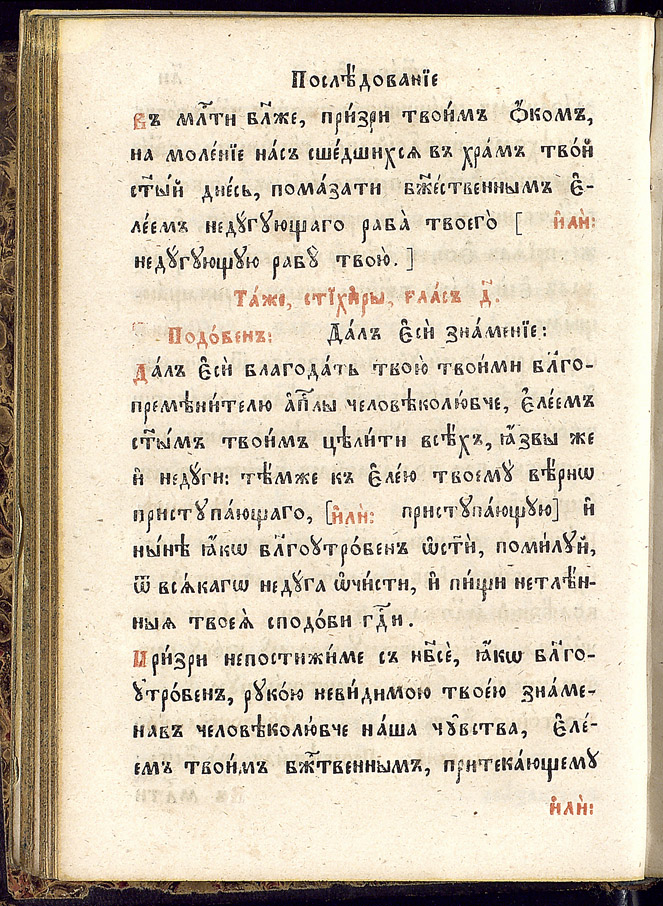 Послѣ́дованїе
Въ млⷭ҇ти бл҃же, при́зри твои́мъ ѻ҆́комъ,
на моле́нїе на́съ сше́дшихсѧ въ хра́мъ тво́й
ст҃ы́й дне́сь, пома́зати бж҃е́ственнымъ є҆-
ле́емъ недꙋ́гꙋющаго раба̀ твоего̀ [ и҆лѝ:
недꙋ́гꙋющꙋю рабꙋ̀ твою̀. ]
Та́же, стїхи̑ры, гла́съ д҃.
Подо́бенъ: Да́лъ є҆сѝ зна́менїе:
Да́лъ є҆сѝ благода́ть твою̀ твои́ми бл҃го-
премѣни́телю а҆пⷭ҇лы человѣколю́бче, є҆ле́емъ
ст҃ы́мъ твои́мъ цѣли́ти всѣ́хъ, ꙗ҆́звы же
и҆ недꙋ́ги: тѣ́мже къ є҆ле́ю твоемꙋ̀ вѣ́рнѡ
пристꙋпа́ющаго, [и҆лѝ: пристꙋпа́ющꙋю] и҆
ны́нѣ ꙗ҆́кѡ бл҃гоꙋтро́бенъ ѡ҆ст҃ѝ, поми́лꙋй,
ѿ всѧ́кагѡ недꙋ́га ѡ҆чи́сти, и҆ пи́щи нетлѣ́н-
ныѧ твоеѧ̀ сподо́би гдⷭ҇и.
При́зри непостижи́ме съ нб҃сѐ, ꙗ҆́кѡ бл҃го-
ꙋтро́бенъ, рꙋко́ю неви́димою твое́ю зна́ме-
навъ человѣколю́бче на́ша чꙋ̑вства, є҆ле́-
емъ твои́мъ бж҃твеннымъ, притека́ющемꙋ
и҆лѝ: